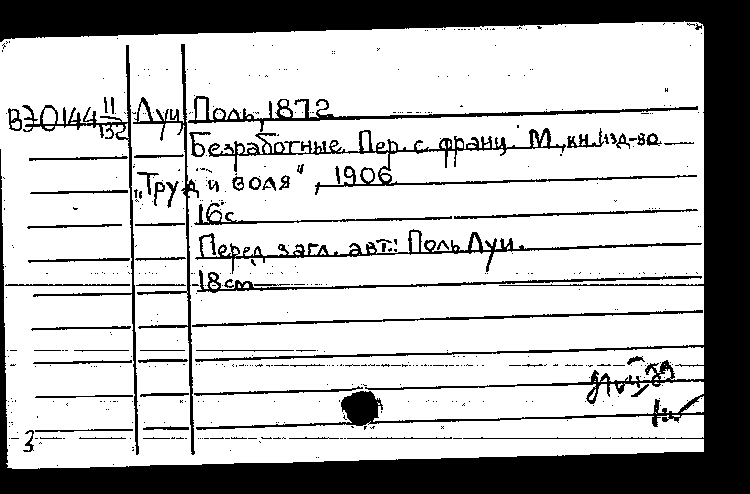 ВЭ0144 11/132 Луи, Поль, 1872
Безработные. Пер. с франц. М., кн. изд-во
„Труд и воля“, 1906
16с
Перед загл. авт.: Поль Луи.
18cm
3